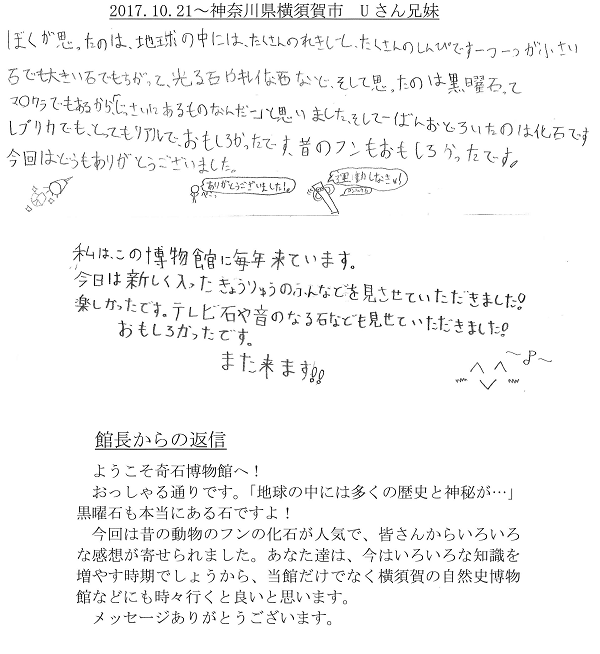 2017.10.21～神奈川県横須賀市　Uさん兄妹
ぼくが思ったのは、地球の中には、たくさんのれきしと、たくさんのしんぴです一つ一つが小さい
石でも大きい石でもちがって、光る石やキレイな石など、そして思ったのは黒曜石って
マイクラでもあるから「じっさいにあるものなんだー」と思いました、そして一ばんおどろいたのは化石です
レプリカでも、とってもリアルで、おもしろかったです、昔のフンもおもしろかったです。
今回はどうもありがとうございました。
ありがとうございました!
運動しなきゃ!
私は、この博物館に毎年来ています。
今日は新しく入ったきょうりゅうのふんなどを見させていただきました!
楽しかったです。テレビ石や音のなる石なども見せていただきました!
おもしろかったです。
また来ます!!
館長からの返信
ようこそ奇石博物館へ！
おっしゃる通りです。「地球の中には多くの歴史と神秘が…」
黒曜石も本当にある石ですよ！
今回は昔の動物のフンの化石が人気で、皆さんからいろいろ
な感想が寄せられました。あなた達は、今はいろいろな知識を
増やす時期でしょうから、当館だけでなく横須賀の自然史博物
館などにも時々行くと良いと思います。
メッセージありがとうございます。